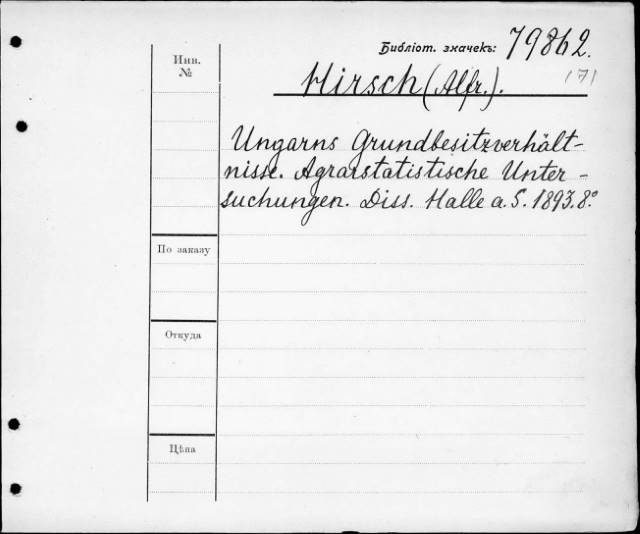 Библіот. значекъ: 79862.
(7)
Инв. №
Hirsch (Alfr.).
Ungarns Grundbesitzverhält-
nisse. Agrarstatistische Unter-
suchungen. Diss. Halle a. S. 1893. 8°
По заказу
Откуда
Цѣна